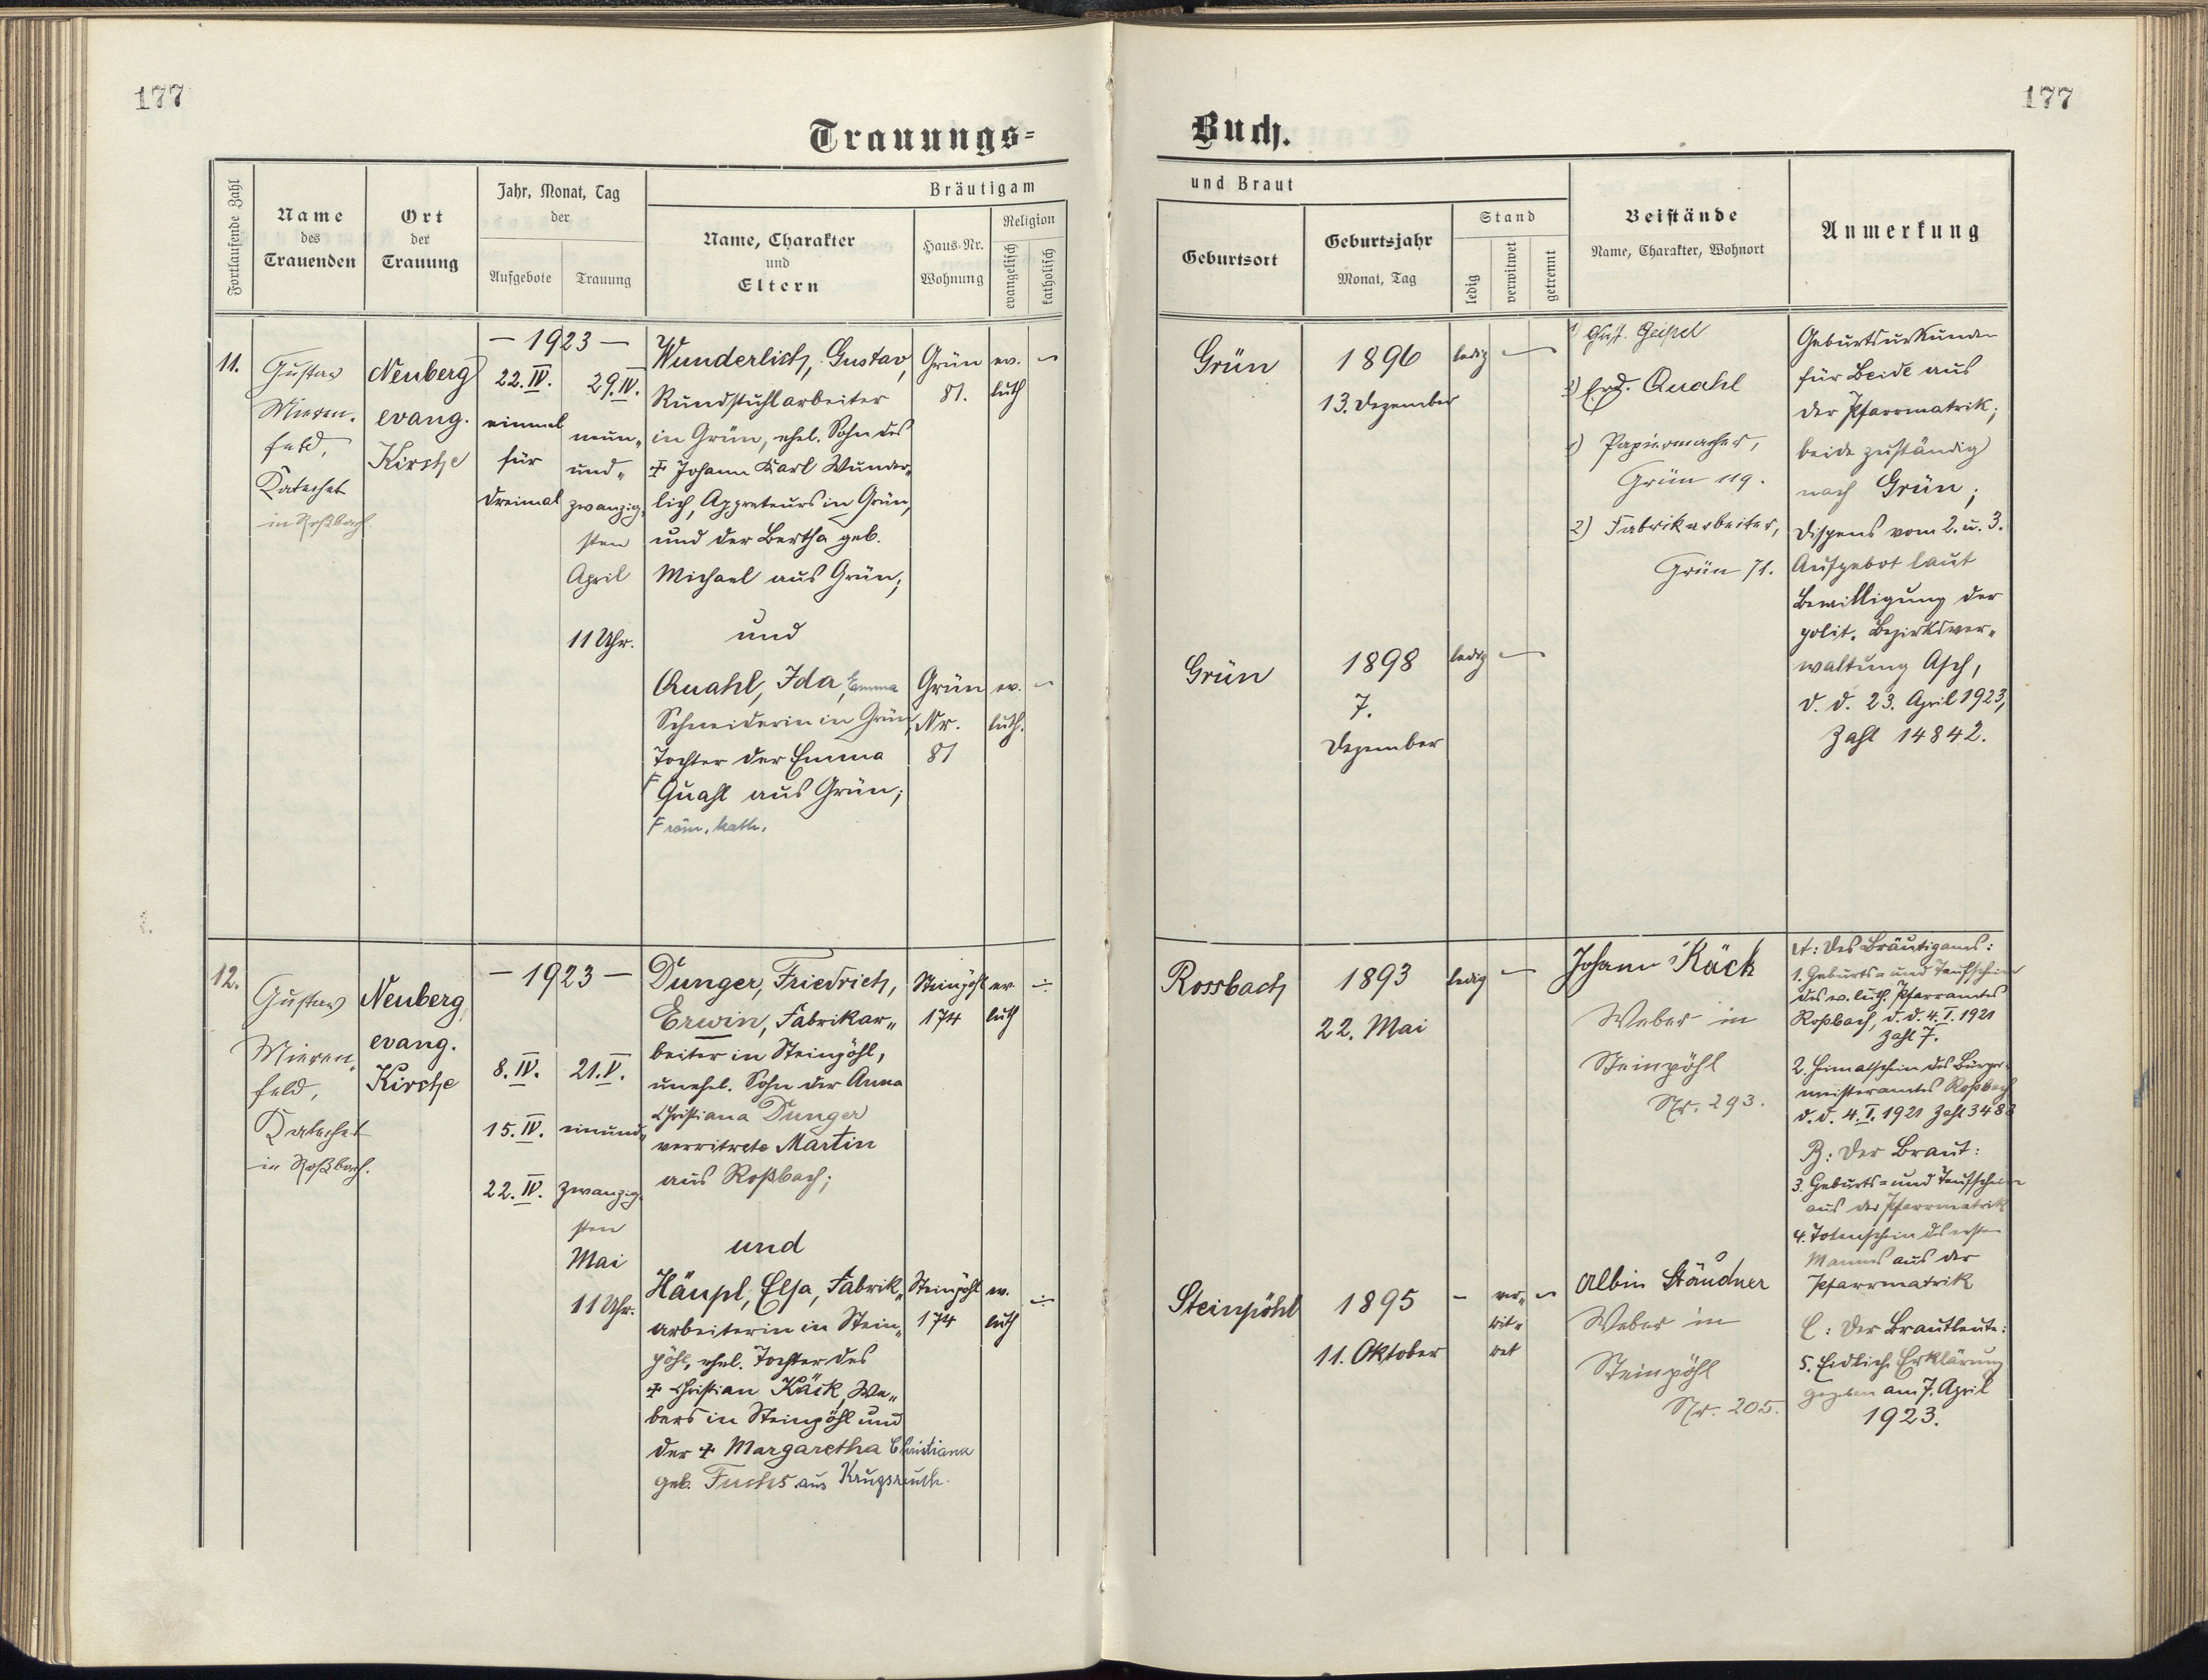 177
177
Trauungs-
Buch.
Fortlaufende Zahl
Name
des
Trauenden
Ort
der
Trauung
Jahr, Monat, Tag
der
Aufgebote
Trauung
Bräutigam
Name, Charakter
und
Eltern
Haus-Nr.
Wohnung
Religion
evangelisch
katholisch
und Braut
Geburtsort
Geburtsjahr
Monat, Tag
Stand
ledig
verwitwet
getrennt
Beistände
Name, Charakter, Wohnort
Anmerkung
11.
Gustav
Mieren-
feld,
Katechet
in Roßbach
Neuberg
evang.
Kirche
– 1923 –
22. IV.
einmal
für
dreimal
29. IV.
neun„
und„
zwanzig„
sten
April
11 Uhr.
Wunderlich, Gustav,
Rundstuhlarbeiter
in Grün, ehel. Sohn des
✝ Johann Karl Wunder„
lich, Appreteurs in Grün,
und der Bertha geb.
Michael aus Grün;
und
Quahl, Ida, Emma
Schneiderin in Grün,
Tochter der Emma
F Quahl aus Grün;
F röm. kath.
Grün
81.
ev.
luth
Grün
Nr.
81
ev.
luth.
Grün
1896
13. Dezember
ledig
Grün
1898
7.
Dezember
ledig
1) Gust. Geipel
2) Erd. Quahl
1) Papiermacher,
Grün 119.
2) Fabrikarbeiter,
Grün 71.
Geburtsurkunden
für Beide aus
der Pfarrmatrik;
beide zuständig
nach Grün;
Dispens vom 2. u. 3.
Aufgebot laut
Bewilligung der
polit. Bezirksver„
waltung Asch,
d. d. 23. April 1923,
Zahl 14842.
12.
Gustav
Mieren„
feld,
Katechet
in Roßbach.
Neuberg,
evang.
Kirche
– 1923 –
8. IV.
15. IV.
22. IV.
21. V.
einund„
zwanzig„
sten
Mai
11 Uhr.
Dunger, Friedrich,
Erwin, Fabrikar„
beiter in Steinpöhl,
unehel. Sohn der Anna
Christiana Dunger
Martin
aus Roßbach;
und
Häupl, Elsa, Fabrik„
arbeiterin in Stein„
pöhl, ehel. Tochter des
✝ Christian Käck, We„
bers in Steinpöhl und
der ✝ Margaretha Christiana
geb. Fuchs aus Krugsreuth.
Steinpöhl
174
ev.
luth
Steinpöhl
174
ev.
luth
Rossbach
1893
22. Mai
ledig
Steinpöhl
1895
11. Oktober
ver„
wit„
wet
Johann Käck
Weber in
Steinpöhl
Nr. 293.
Albin Ständner
Weber in
Steinpöhl
Nr. 205.
A: Des Bräutigams:
1. Geburts- und Taufschein
des ev. luth. Pfarramtes
Roßbach, d. d. 4. I. 1921
Zahl 7.
2. Heimatschein des Bürger-
meisteramtes Roßbach
d. d. 4. I. 1921 Zahl 3488
B: Der Braut:
3. Geburts- und Taufschein
aus der Pfarrmatrik
4. Totenschein des ersten
Mannes aus der
Pfarrmatrik
C: Der Brautleute:
5. Eidliche Erklärung
gegeben am 7. April
1923.